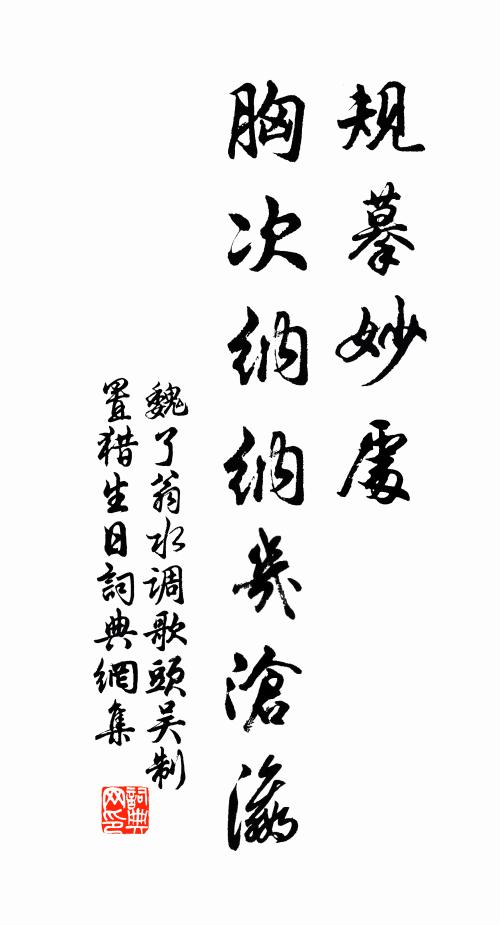 規摹妙處
胸次納納幾滄瀛
魏了翁水调歌頭吴制
置猎生日詞典網集
詞典
网印